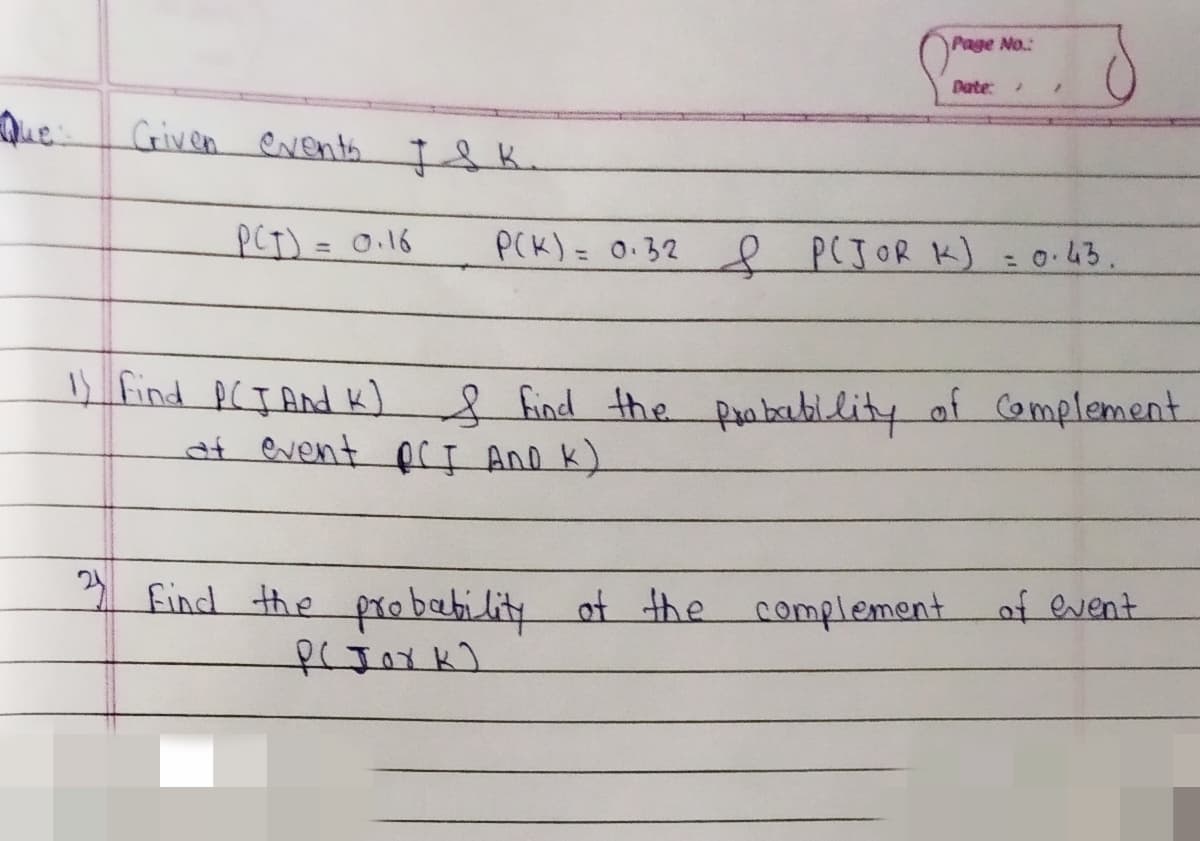 Page No.:
Date:
Que:- Given events J & K.
P(J) = 0.16 , P(K) = 0.32 & P(J OR K) = 0.43.
1) Find P(J And K) & find the probability of Complement
of event P(J AND K)
2) Find the probability of the complement of event
P(J or K)